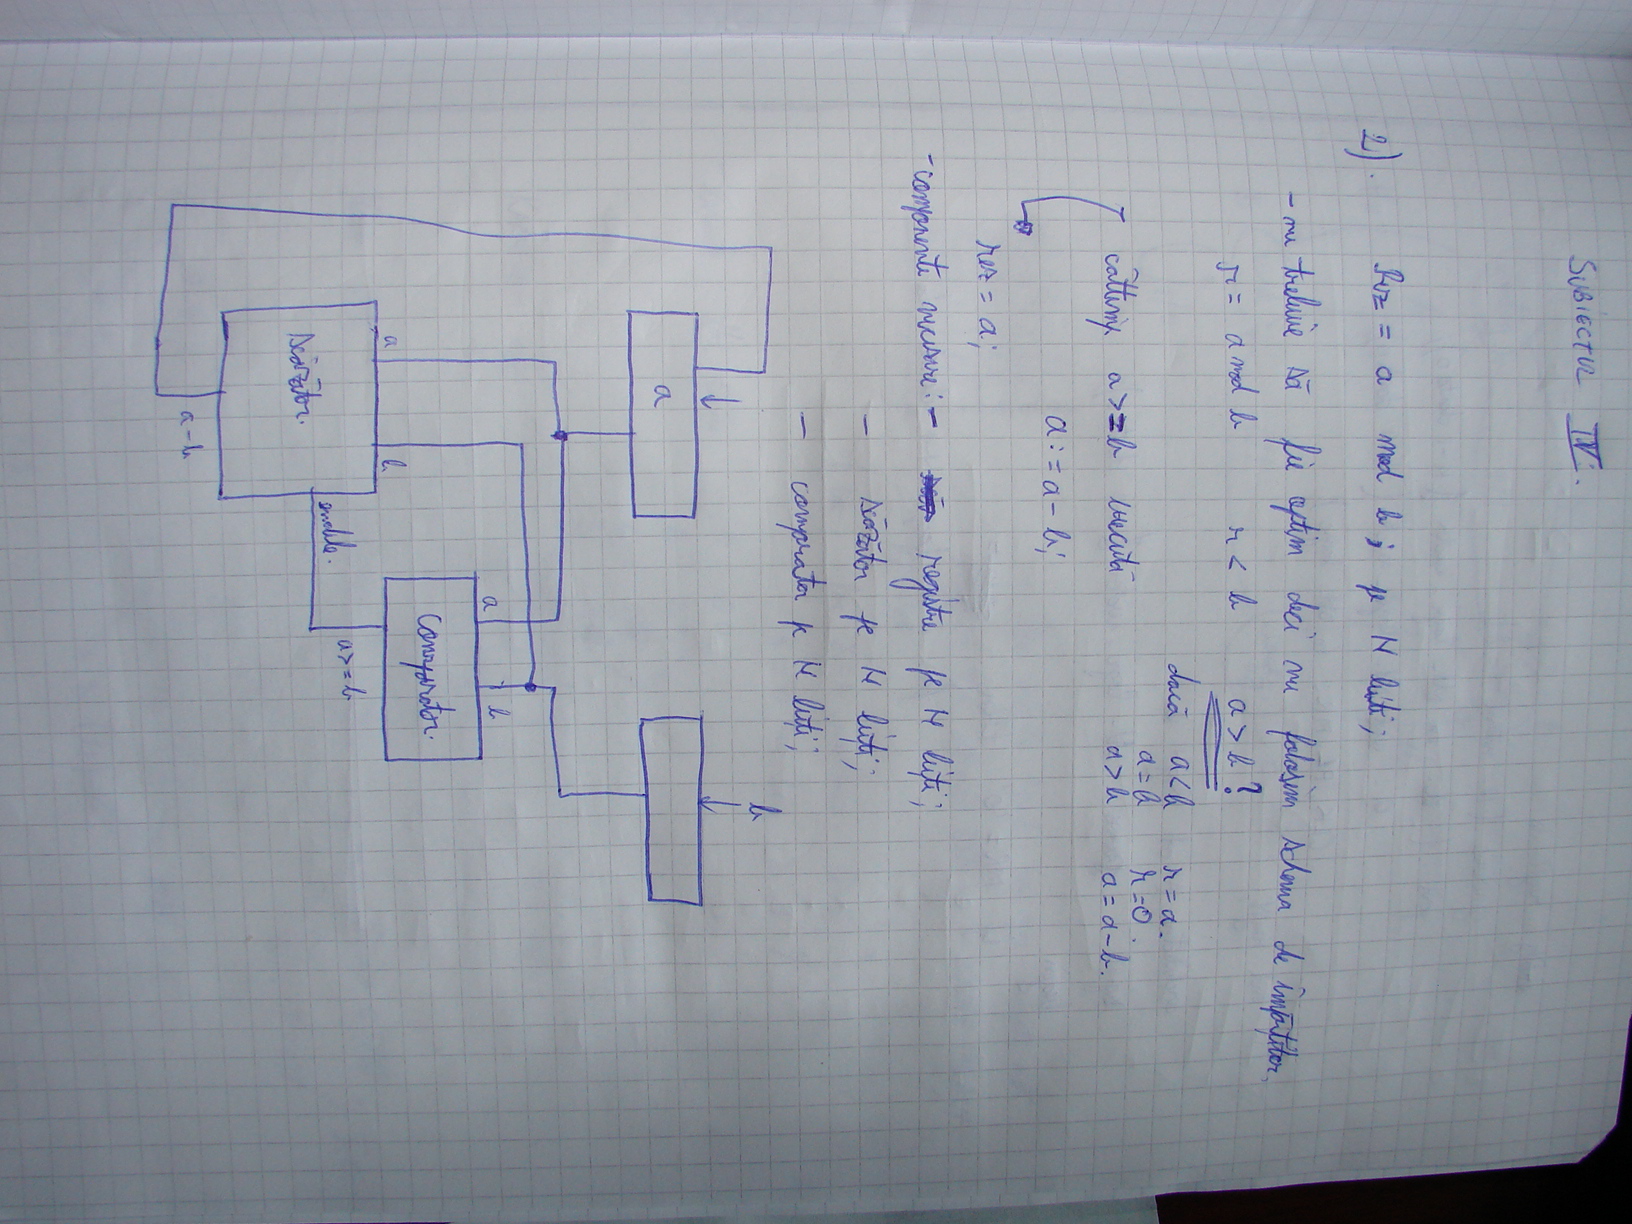 SUBIECTUL IV.
2). Rez = a mod b; pe N biți;
- nu trebuie să fie optim deci nu folosim schema de împărțitor.
r = a mod b r < b a > b?
dacă a < b r = a.
a = b r = 0.
a > b a = a - b.
câttimp a >= b execută
a := a - b;
rez = a;
- componente necesare: - registre pe N biți;
- scăzător pe N biți;
- comparator pe N biți;
b
a
a b
Scăzător.
enable.
a - b
a b
Comparator.
a >= b